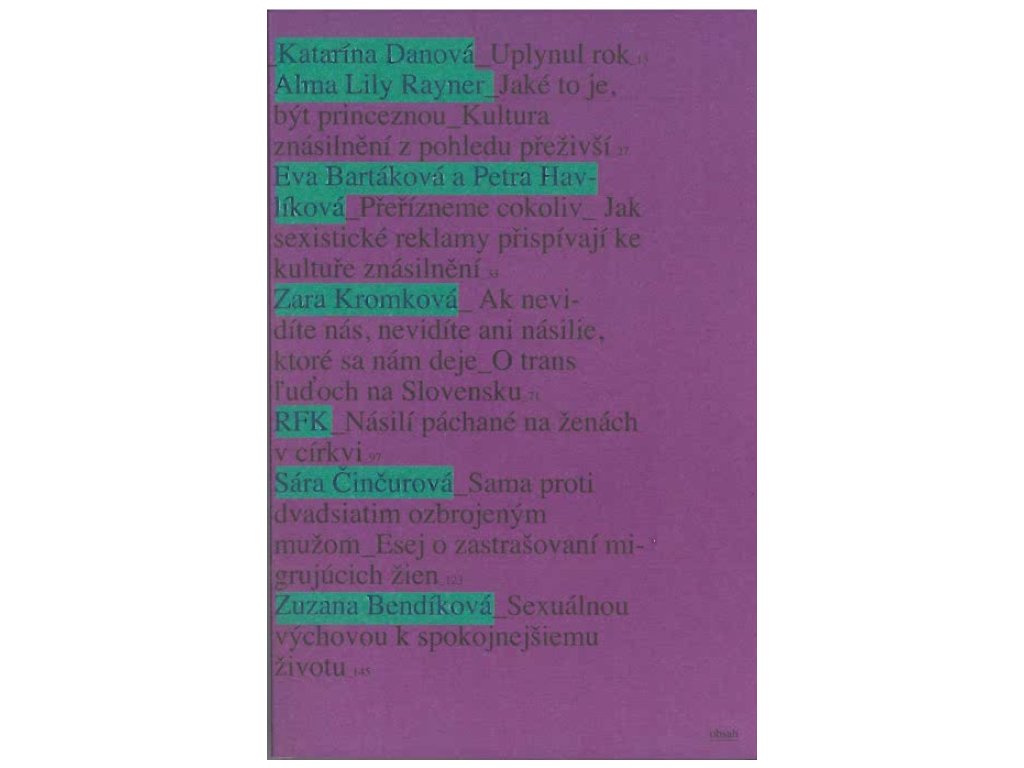 _Katarína Danová_Uplynul rok_13
Alma Lily Rayner_Jaké to je,
být princeznou_Kultura
znásilnění z pohledu přeživší_27
Eva Bartáková a Petra Hav-
líková_Přeřízneme cokoliv_ Jak
sexistické reklamy přispívají ke
kultuře znásilnění
Zara Kromková_ Ak nevi-
díte nás, nevidíte ani násilie,
ktoré sa nám deje_O trans
ľuďoch na Slovensku_71
RFK_Násilí páchané na ženách
v církvi_97
Sára Činčurová_Sama proti
dvadsiatim ozbrojeným
mužom_Esej o zastrašovaní mi-
grujúcich žien_123
Zuzana Bendíková_Sexuálnou
výchovou k spokojnejšiemu
životu_145
obsah